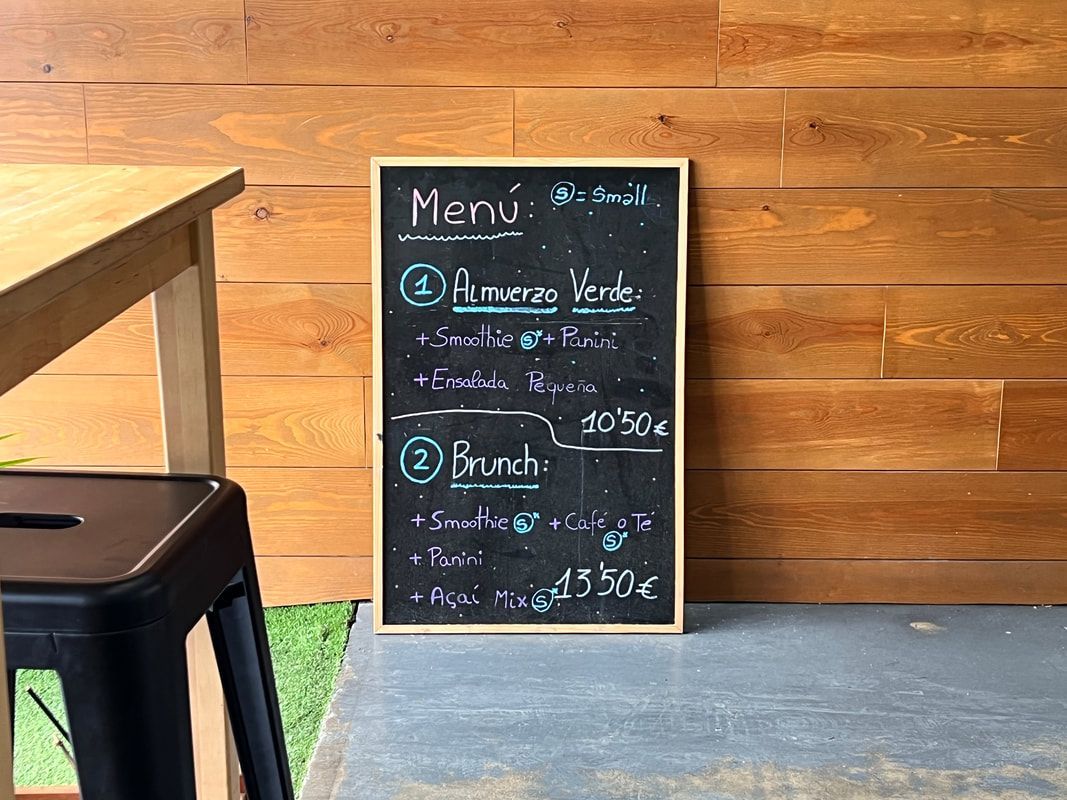 Menú: Ⓢ = Small
① Almuerzo Verde:
+ Smoothie Ⓢ* + Panini
+ Ensalada Pequeña
10'50€
② Brunch:
+ Smoothie Ⓢ* + Café o Té Ⓢ*
+ Panini
+ Açaí Mix Ⓢ* 13'50€